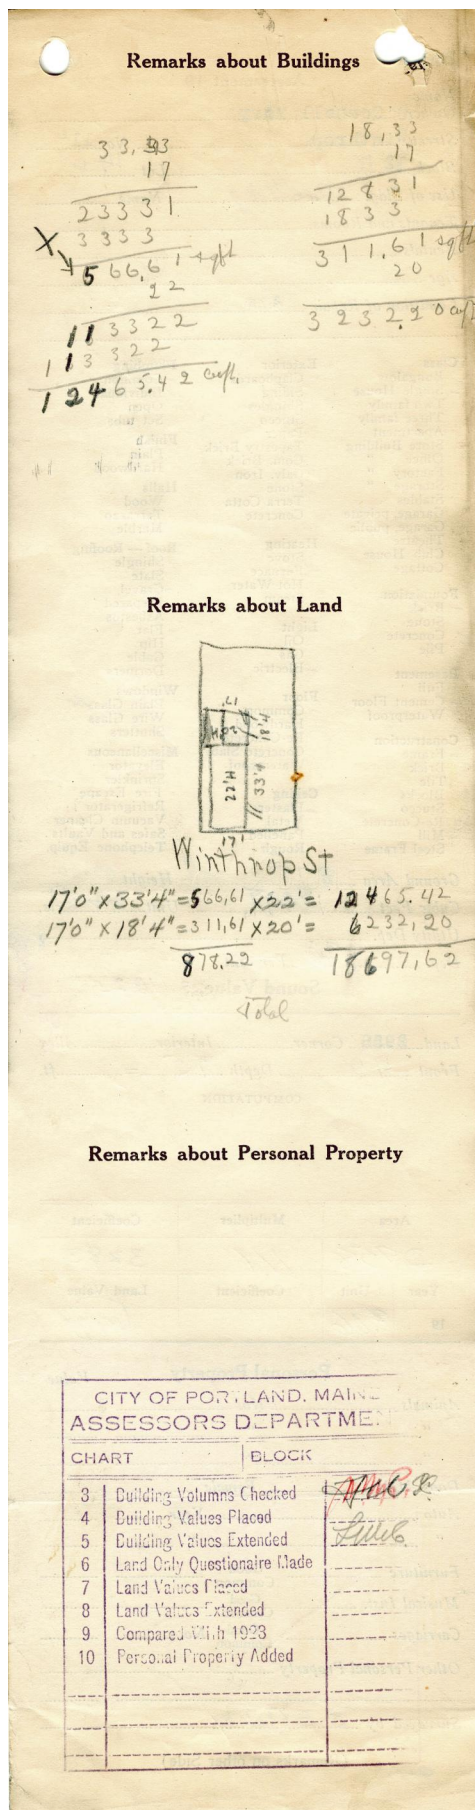 Remarks about Buildings
33,33
17
23331
3333
X
566,61 sqft
22
113322
113322
12465.42 cuft.
18,33
17
12831
1833
311.61 sqft
20
3232.20 cuft
Remarks about Land
17'
20'H
18'4"
22'H
33'4"
17'
Winthrop St
17'0" X 33'4" = 566,61 X 22' = 12465.42
17'0" X 18'4" = 311,61 X 20' = 6232,20
878.22 18697,62
Total
Remarks about Personal Property
CITY OF PORTLAND, MAINE
ASSESSORS DEPARTMEN
CHART BLOCK
3 Building Volumns Checked
4 Building Values Placed
5 Building Values Extended
6 Land Only Questionaire Made
7 Land Values Placed
8 Land Values Extended
9 Compared With 1923
10 Personal Property Added